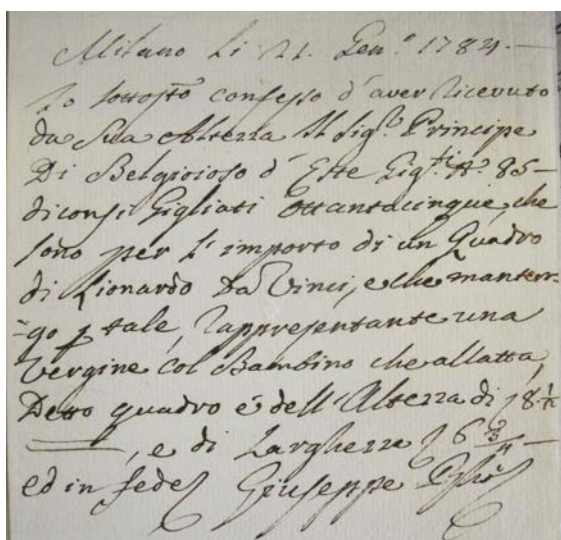 Milano Li 21. Gen.º 1784.—
Io sottostº confesso d'aver ricevuto
da Sua Altezza Il Sig.r Principe
Di Belgioioso d'Este Gig.ti Nº. 85—
diconsi Gigliati Ottantacinque, che
sono per L'importo di un Quadro
di Lionardo Da Vinci, e che manten-
-go p tale, rappresentante una
Vergine col Bambino che allatta,
Detto quadro é dell'Altezza di 8
, e di Larghezza 6
ed in fede Giuseppe